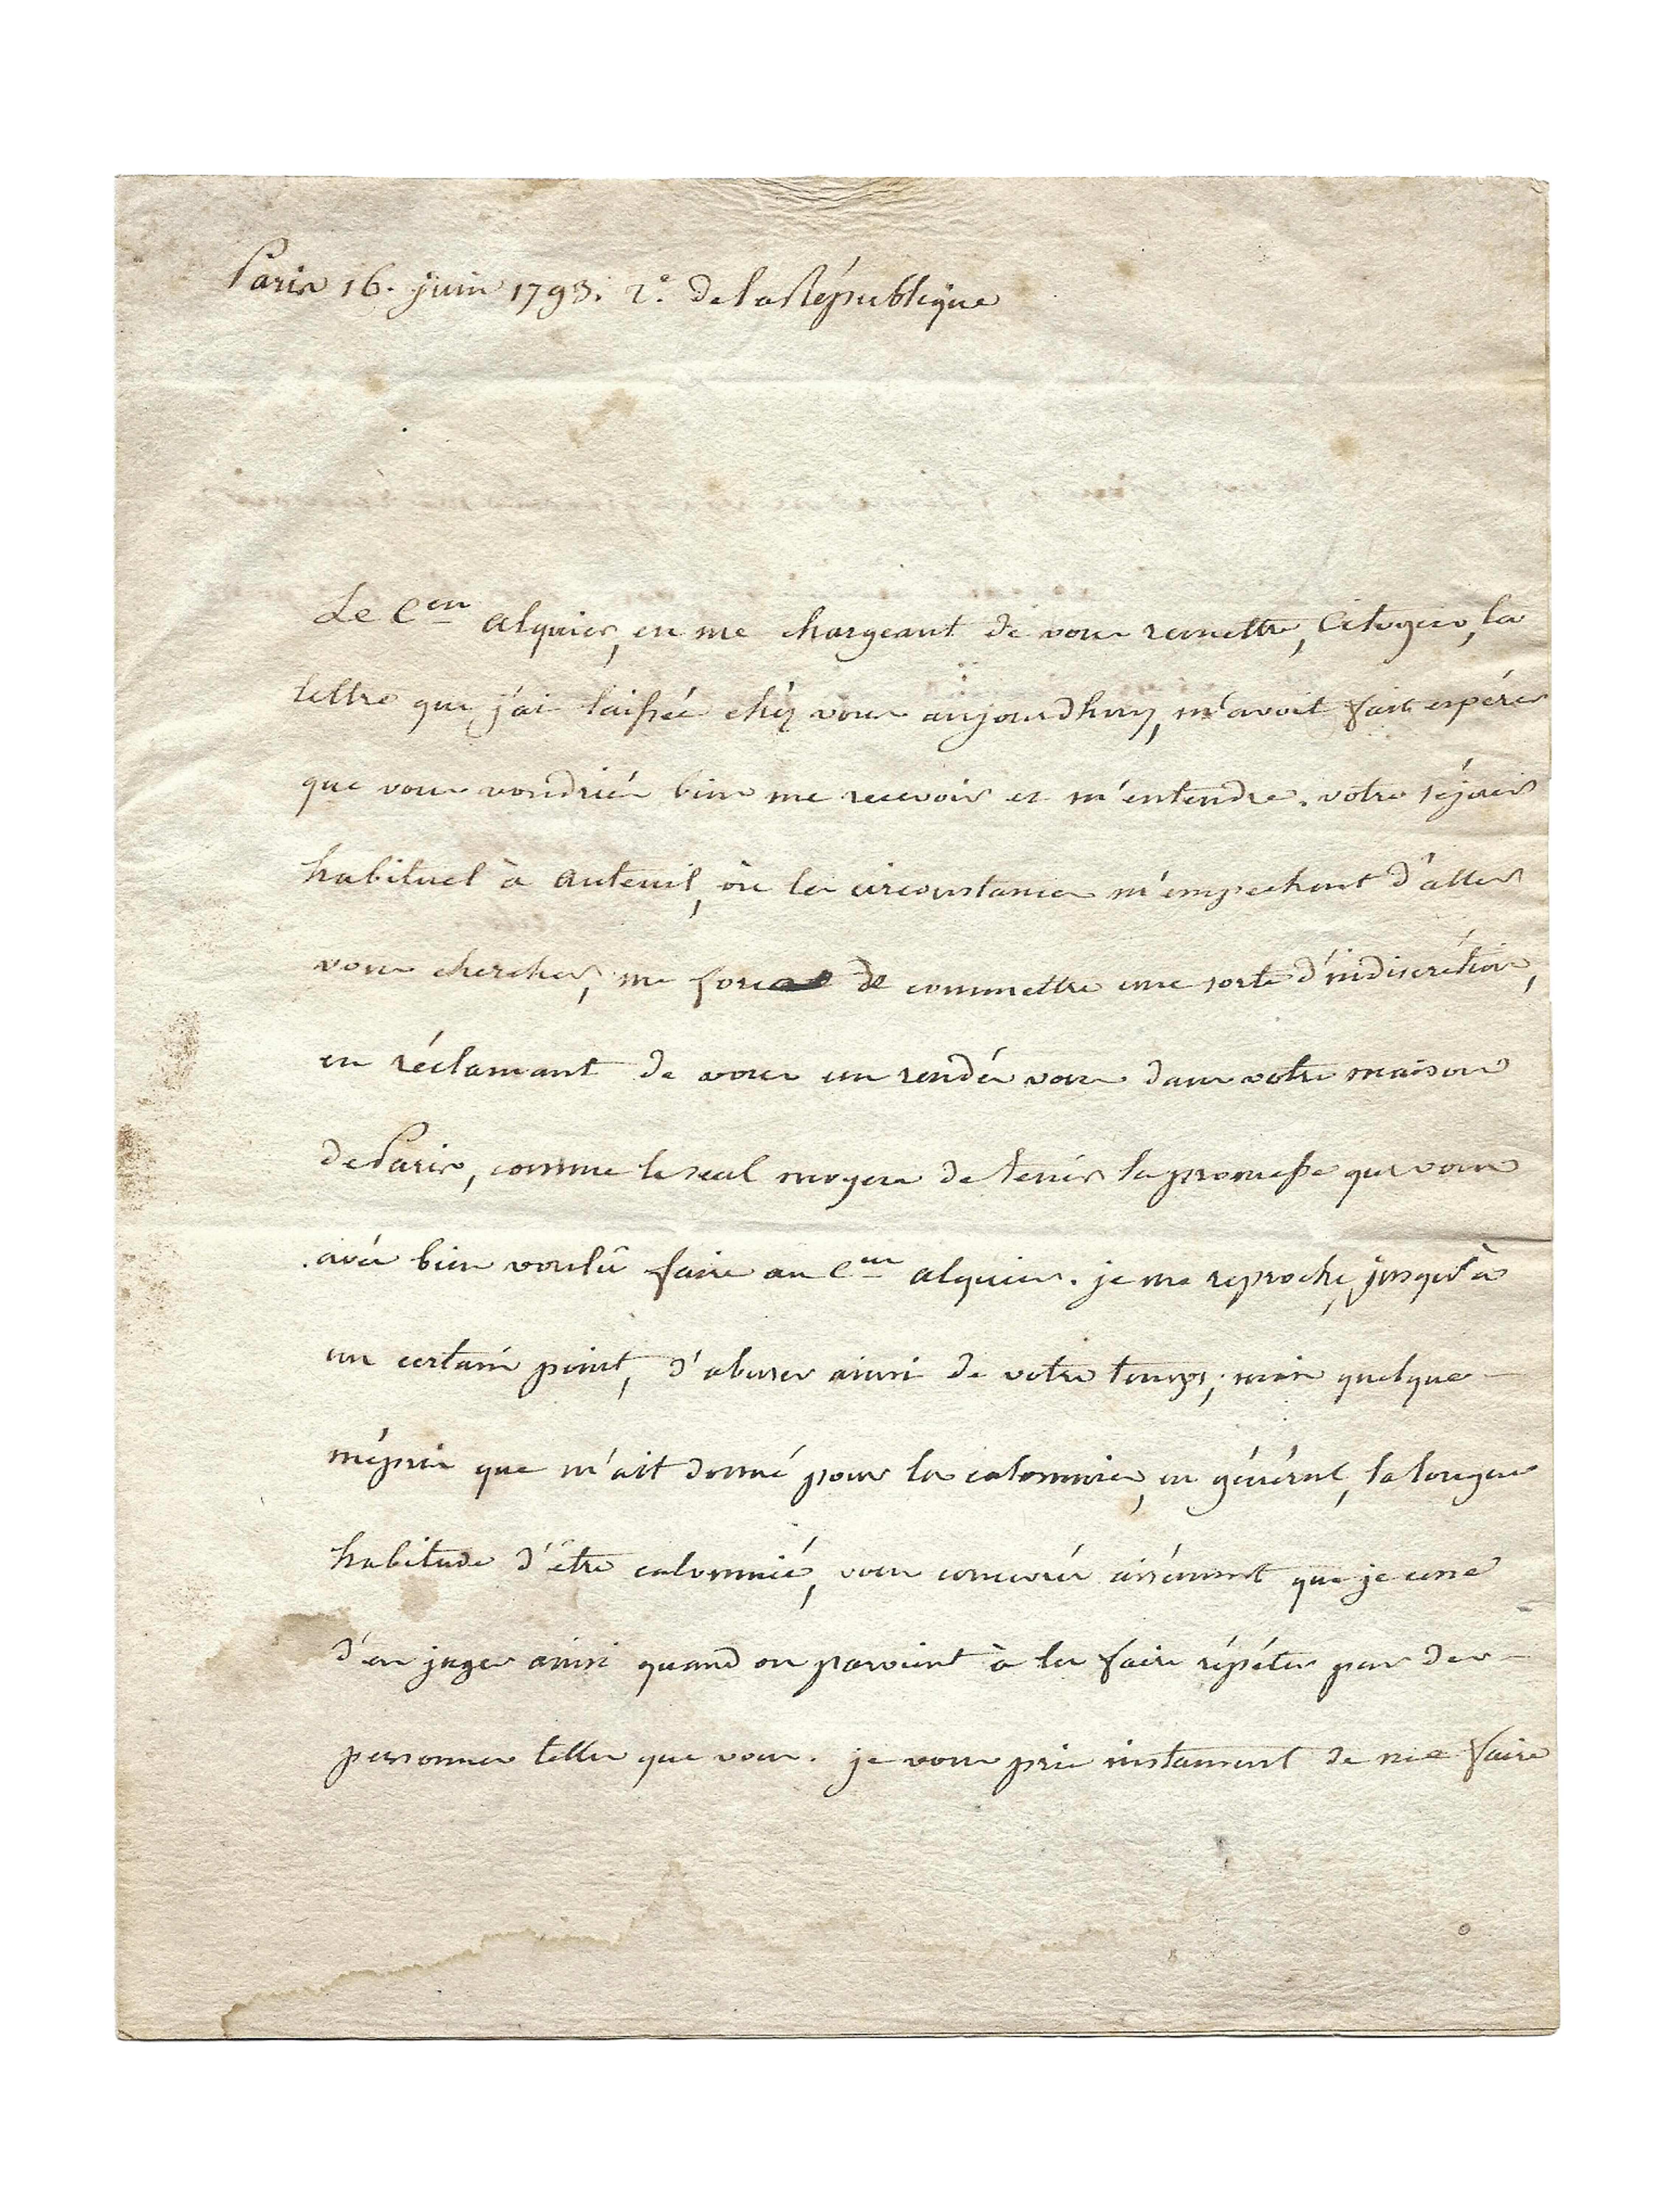 Paris 16. juin 1793. 2.° de la République
Le C.en alquier, en me chargeant de vous remettre, Citoyen, la
lettre que j'ai laissée chéz vous aujourdhuy, m'avoit fait espérer
que vous voudriés bien me recevoir et m'entendre. votre séjour
habituel à auteuil, où les circonstances m'empechent d'aller
vous chercher, me force de commettre une sorte d'indiscrétion,
en réclamant de vous un rendés vous dans votre maison
de Paris, comme le seul moyen de tenir la promesse que vous
avés bien voulû faire au C.en alquier. je me reproche, jusqu'à
un certain point, d'abuser ainsi de votre temps; mais quelque
mépris que m'ait donné pour les calomnies, en général, la longue
habitude d'être calomnié, vous concevrés aisément que je cesse
d'en juger ainsi quand on parvient à les faire répéter par des
personnes telles que vous. je vous prie instament de me faire